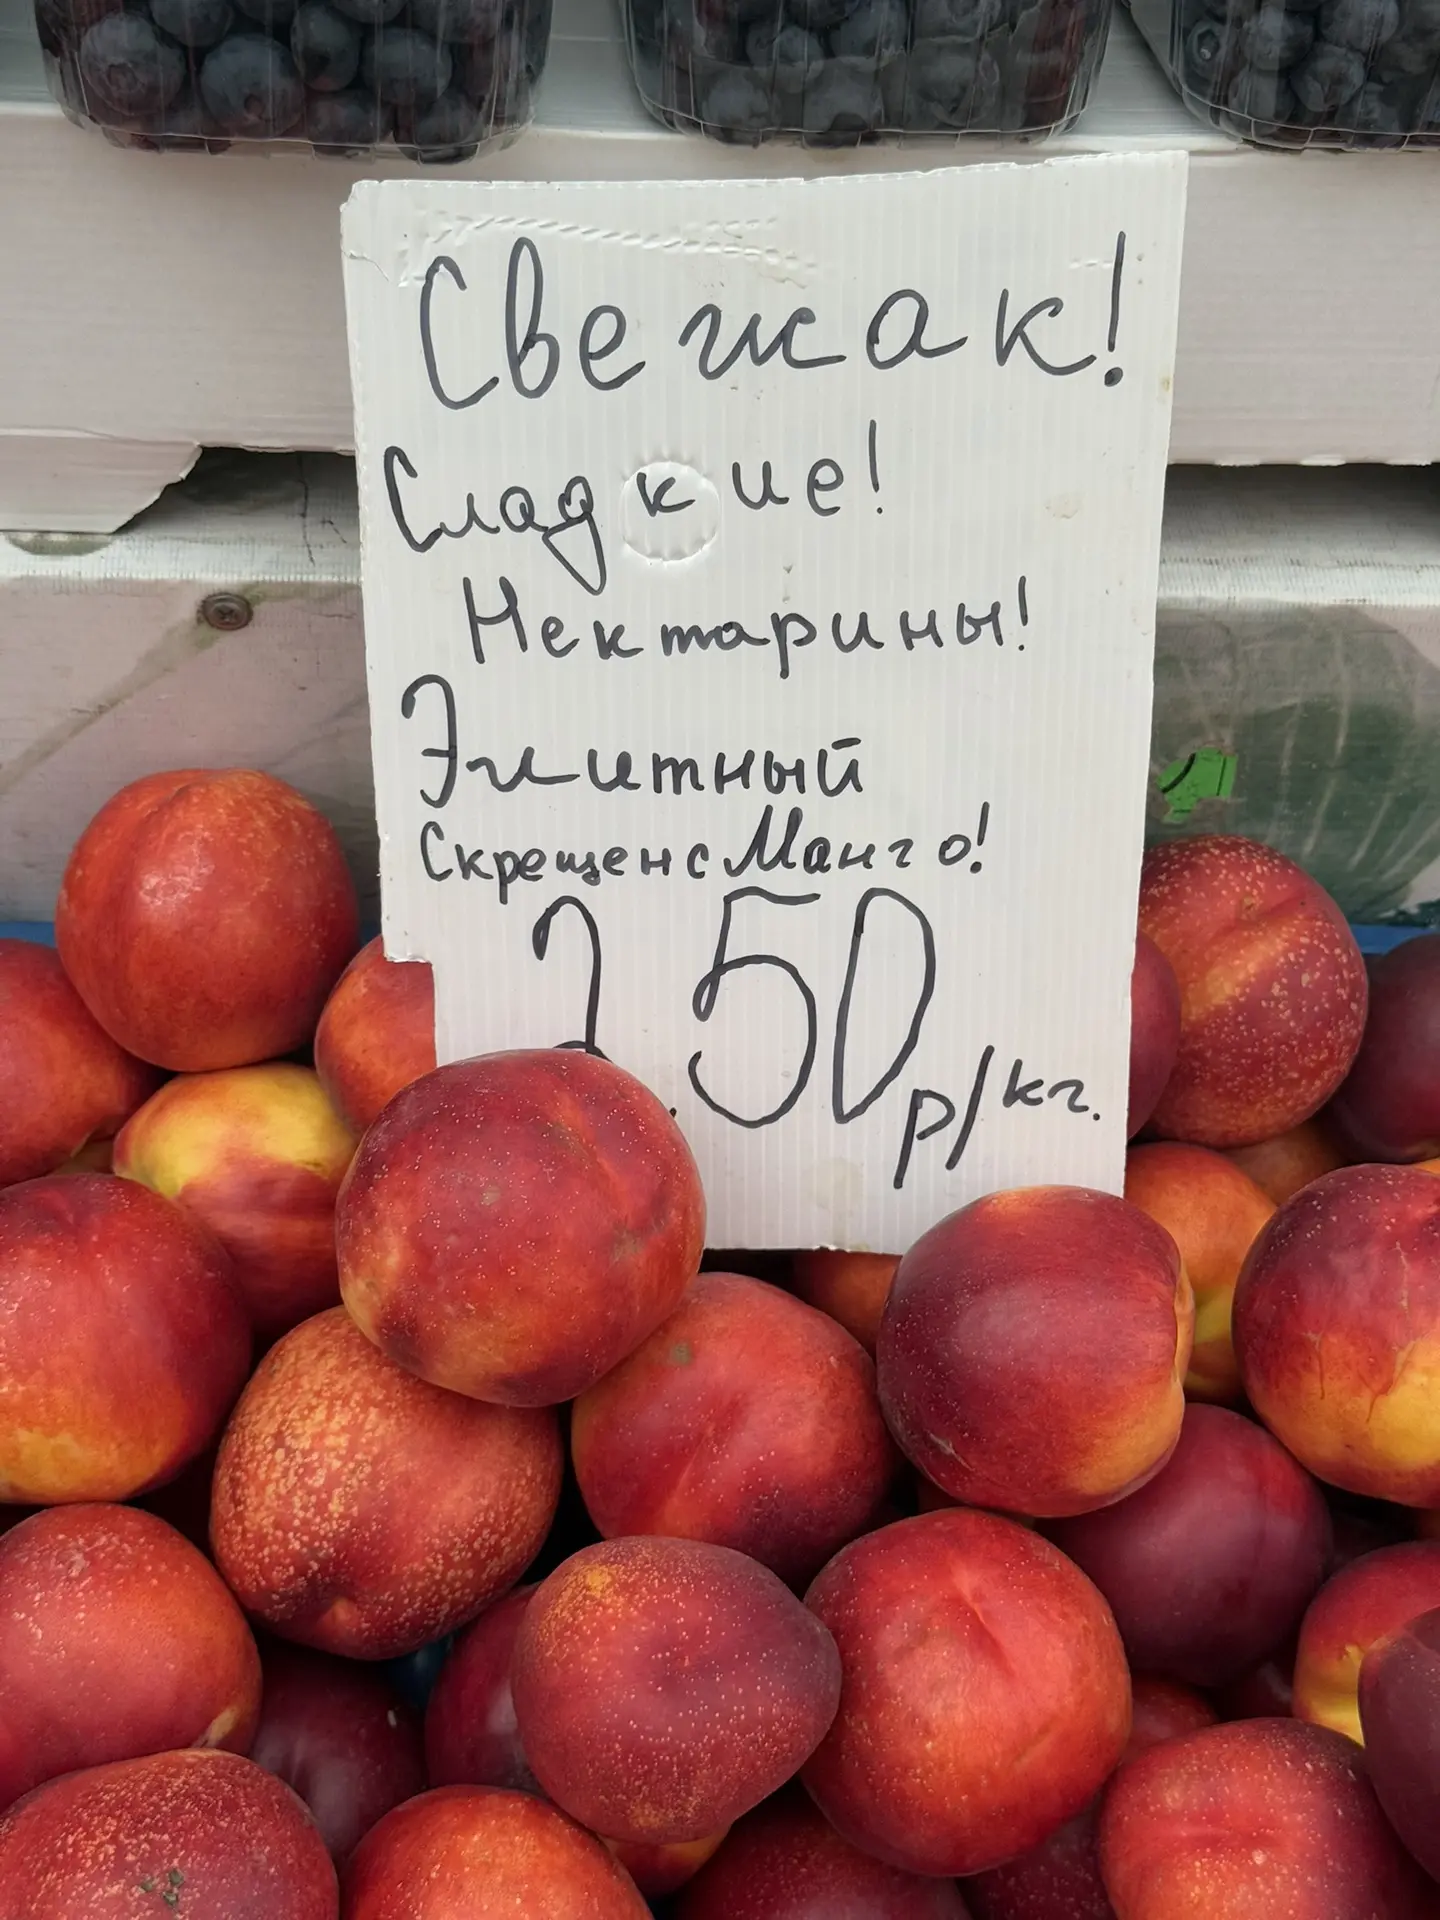 Свежак!
Сладкие!
Нектарины!
Элитный
Скрещен с Манго!
250 р/кг.